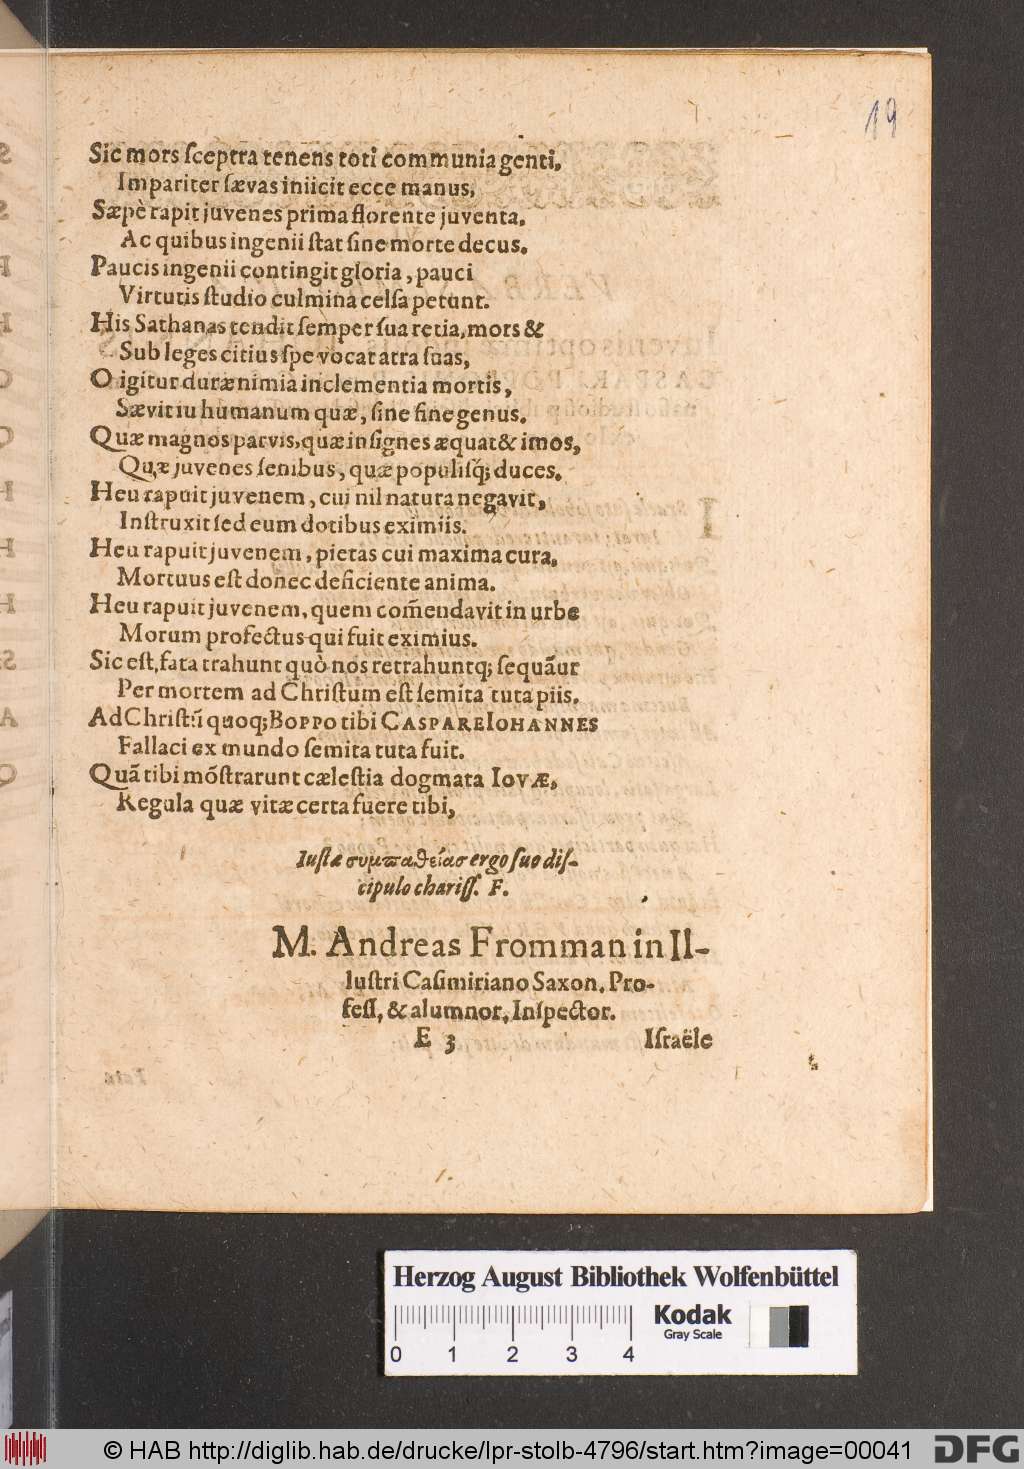 19
Sic mors ſceptra tenens toti communia genti,
Impariter ſævas iniicit ecce manus,
Sæpè rapit juvenes prima florente juventa.
Ac quibus ingenii ſtat ſine morte decus.
Paucis ingenii contingit gloria, pauci
Virtutis ſtudio culmina celſa petunt.
His Sathanas tendit ſemper ſua retia, mors &
Sub leges citius ſpe vocat atra ſuas,
O igitur duræ nimia inclementia mortis,
Sævit iu humanum quæ, ſine fine genus.
Quæ magnos parvis, quæ inſignes æquat & imos,
Quæ juvenes ſenibus, quæ populiſq́; duces.
Heu rapuit juvenem, cui nil natura negavit,
Inſtruxit ſed eum dotibus eximiis.
Heu rapuit juvenem, pietas cui maxima cura,
Mortuus eſt donec deficiente anima.
Heu rapuit juvenem, quem com̃endavit in urbe
Morum profectus qui fuit eximius.
Sic eſt, fata trahunt quò nos retrahuntq; ſequãur
Per mortem ad Chriſtum eſt ſemita tuta piis.
Ad Chriſtũ quoq; BOPPO tibi CASPARE IOHANNES
Fallaci ex mundo ſemita tuta fuit.
Quã tibi mõſtrarunt cæleſtia dogmata IOVÆ,
Regula quæ vitæ certa fuere tibi,
Iuſtæ συμπαθείας ergo ſuo diſ-
cipulo chariſſ. F.
M. Andreas Fromman in Il-
luſtri Caſimiriano Saxon. Pro-
feſſ, & alumnor, Inſpector.
E 3 Iſraële
Herzog August Bibliothek Wolfenbüttel
Kodak
Gray Scale
0 1 2 3 4
© HAB http://diglib.hab.de/drucke/lpr-stolb-4796/start.htm?image=00041
DFG